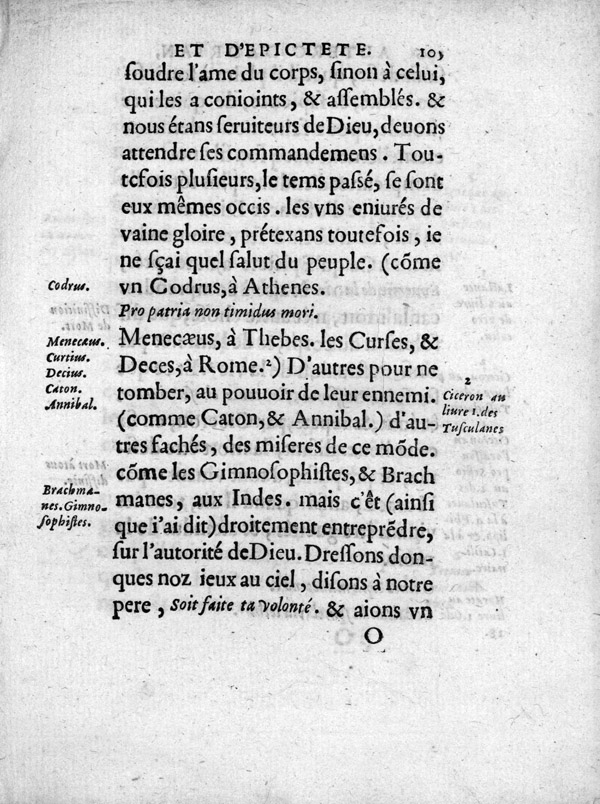 ET D'EPICTETE. 105
ſoudre l'ame du corps, ſinon à celui,
qui les a conioints, & aſſemblés. &
nous étans ſeruiteurs de Dieu, deuons
attendre ſes commandemens. Tou-
tefois pluſieurs, le tems paſſé, ſe ſont
eux mêmes occis. les vns eniurés de
vaine gloire, prétexans toutefois, ie
ne ſçai quel ſalut du peuple. (cõme
Codrus.
vn Codrus, à Athenes.
Pro patria non timidus mori.
Menecæus.
Menecæus, à Thebes. les Curſes, &
Curtius.
Decius.
Deces, à Rome.²) D'autres pour ne
Caton.
tomber, au pouuoir de leur ennemi.
2
Ciceron au
liure 1. des
Tuſculanes
Annibal.
(comme Caton, & Annibal.) d'au-
tres fachés, des miſeres de ce mõde.
cõme les Gimnoſophiſtes, & Brach
Brachma-
nes. Gimno-
ſophiſtes.
manes, aux Indes. mais c'êt (ainſi
que i'ai dit) droitement entreprẽdre,
ſur l'autorité de Dieu. Dreſſons don-
ques noz ieux au ciel, diſons à notre
pere, Soit faite ta volonté. & aions vn
O